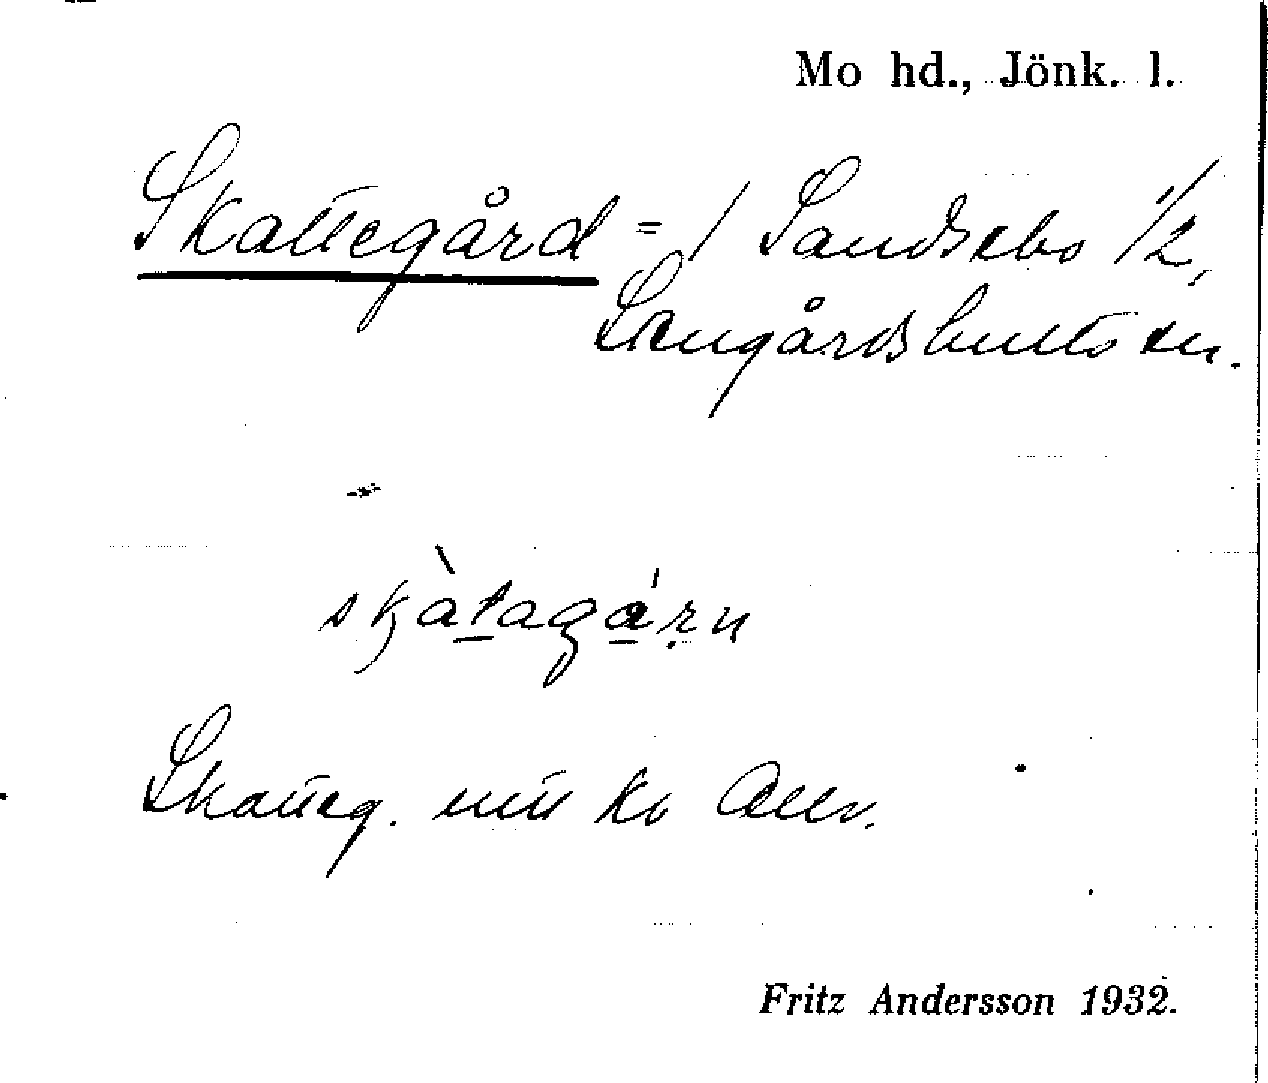 Mo hd., Jönk. l.
Skattegård = / Sandsebo 1/2,
Stengårdshults sn.
skàtagárn
Skatteg. till
Fritz Andersson 1932.